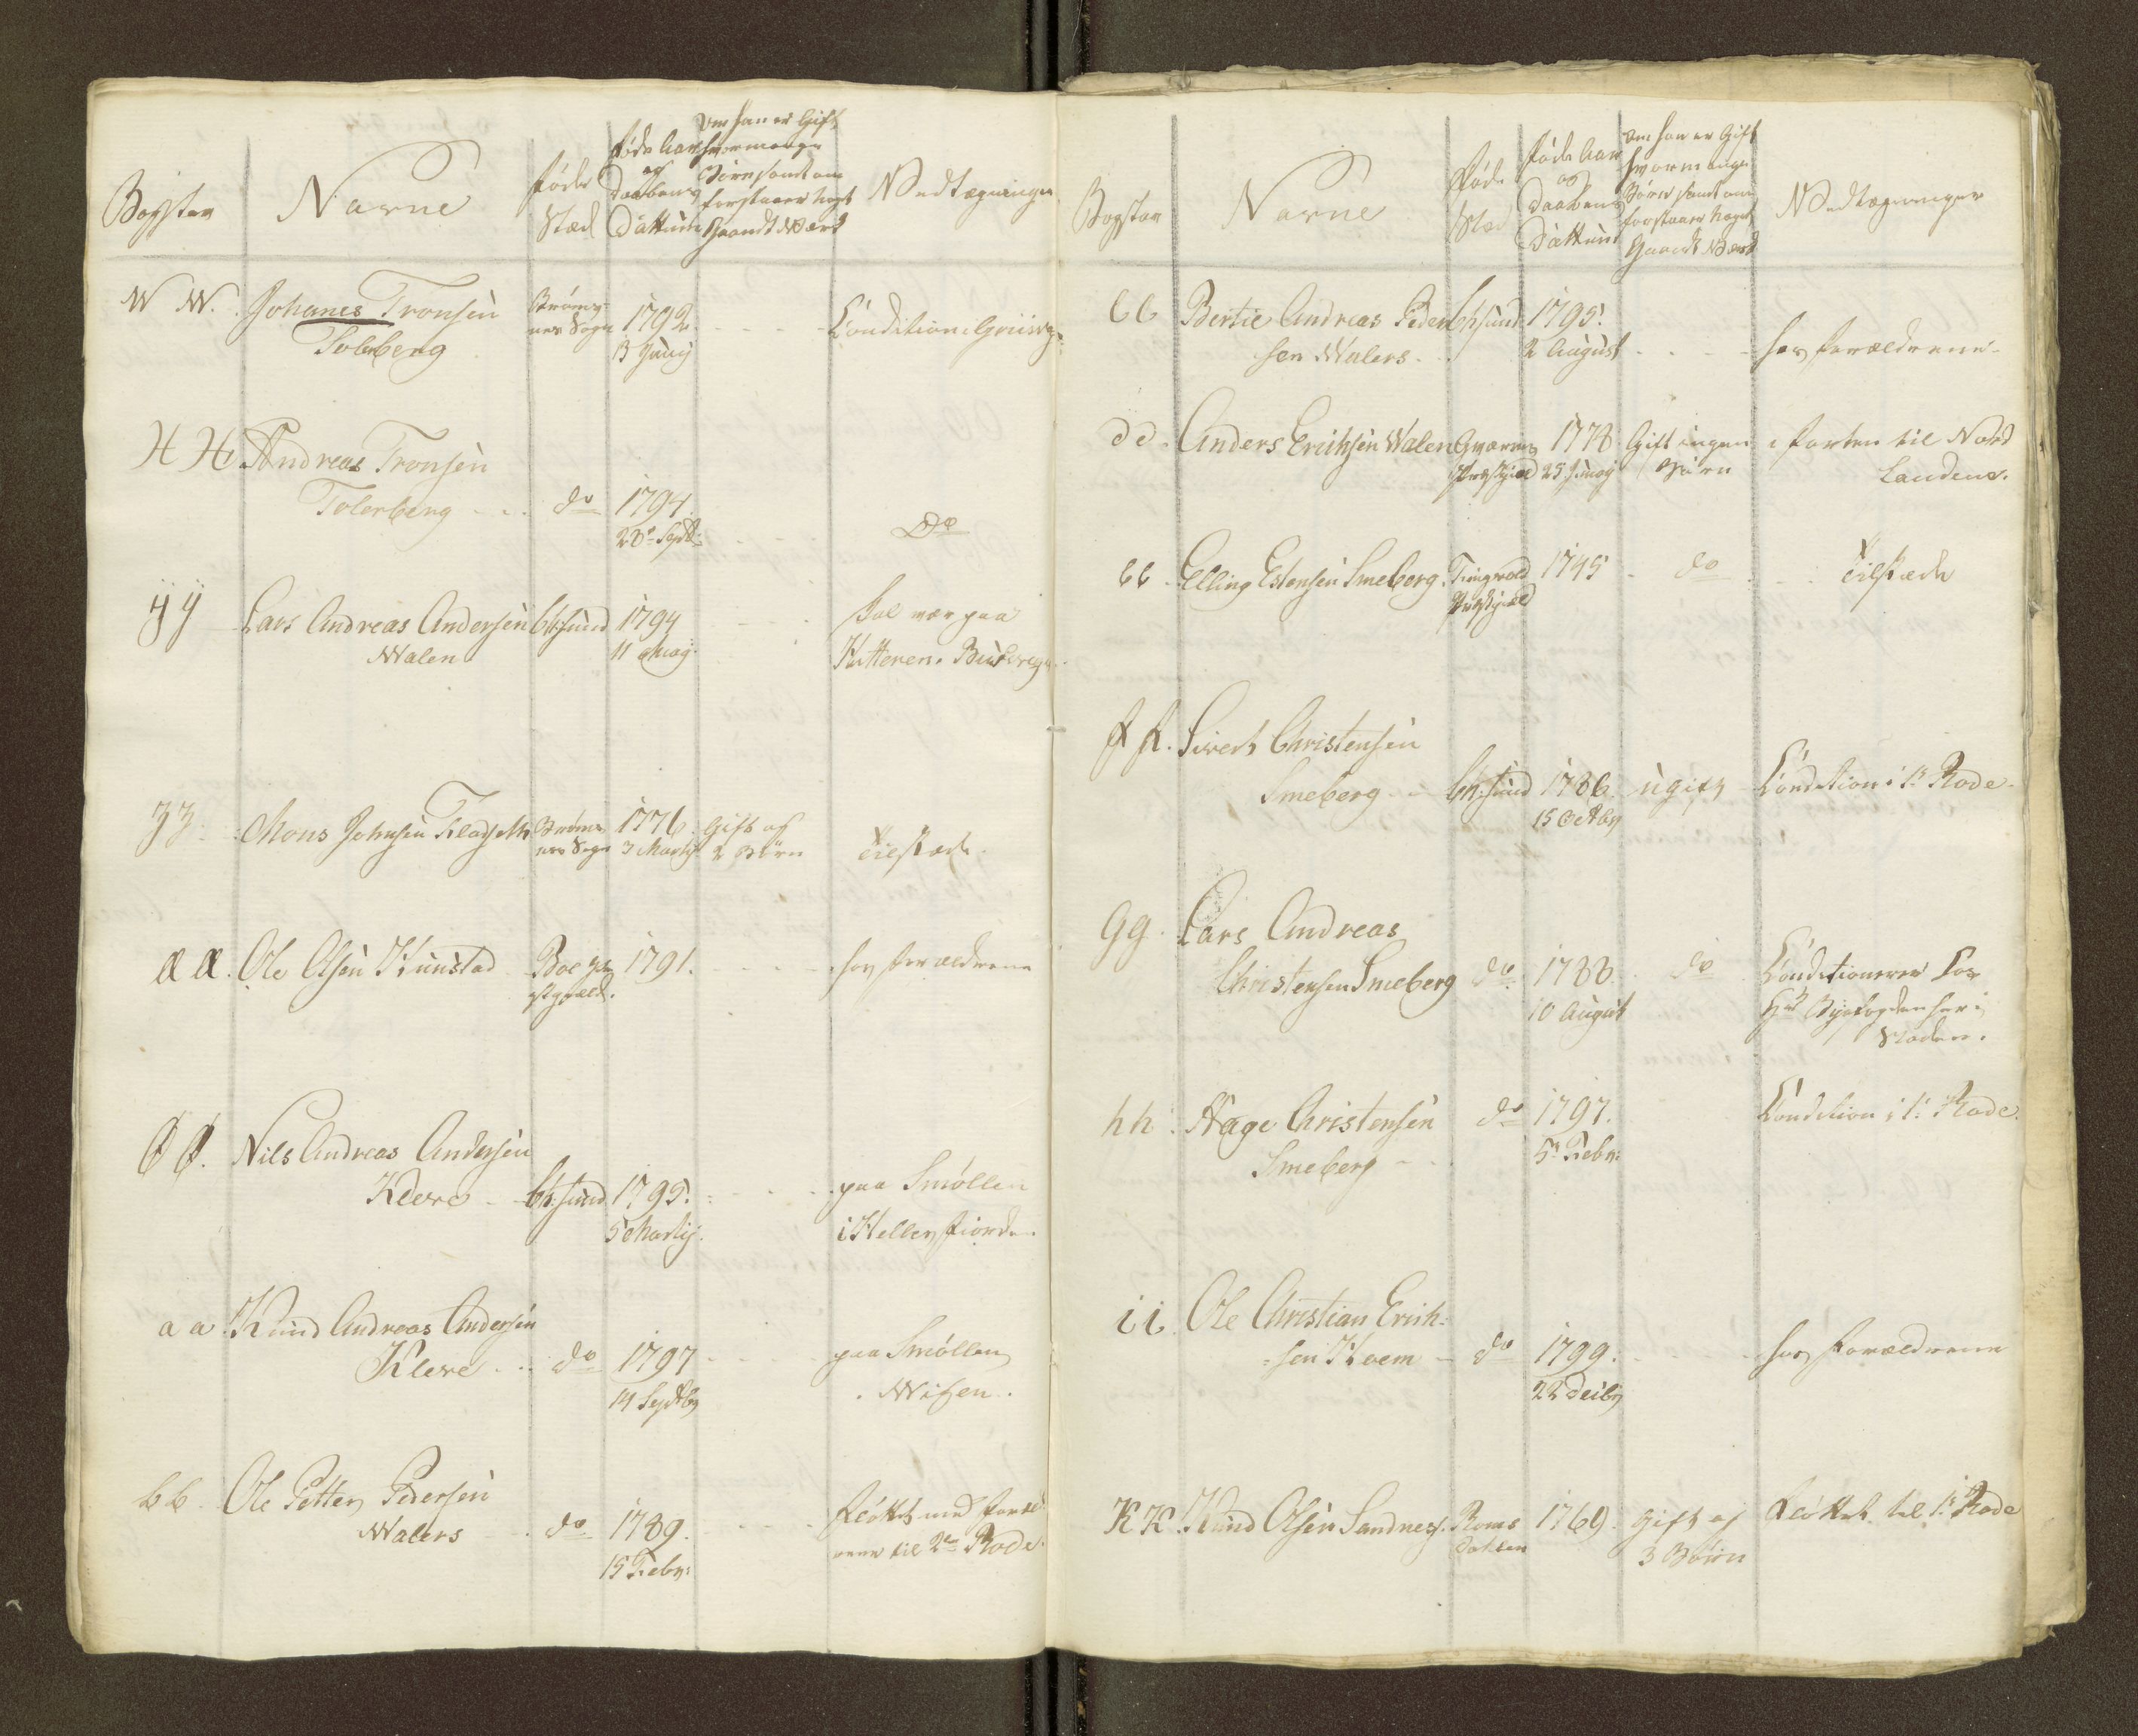 Bogstav
Navne
Føde
Stæd
føde Aar
og
Daabens
Dattum
Om han er Gift
hvormange
Børn samt om
forstaaer noget
Haandt Værk
Vedtægninger
W W. Johanes Tronsen
Tolerberg
Bremsnes Sogn
1792.
13 Junij
Condition i
H H. Andreas Tronsen
Tolerberg
do
1794.
28de Septb.
Do
ÿ ÿ Lars Andreas Andersen
Walen
Ch:sund
1794
11 Maij.
Skal vær paa
Hitteren.
Z Z. Mons Johnsen
Bremsnes Sogn
1776.
3 Martij
Gift og
2 Børn
Tilstæde.
Æ Æ. Ole Olsen Kunstad
1791.
hos forældrene
Ø Ø. Nils Andreas Andersen
Kleve
Ch:sund
1795.
5 Martij.
paa Smøllen
i
a a Knud Andreas Andersen
Kleve
do
1797
14 Septbr
paa Smøllen
b b. Ole Petter Pedersen
Walers
do
1789.
15 Febr:
fløttet med foræld
rene til 2den Rode.
Bogstav
Navne
Føde
Stæd
føde Aar
og
Daabens
Dattum
Om han er Gift
hvormange
Børn samt om
forstaaer noget
Haandt Værk
Vedtægninger
c c Bertie Andreas Peder
sen Walers
Ch:sund
1795.
2 August
hos forældrene
d d. Anders Erichsen Walen
1778
25 Junij
Gift ingen
Børn
i farten til Nord
Landene.
e e. Elling Estensen Smeberg.
Tingvold
Præstgield
1745
do
Tilstæde
f f. Sivert Christensen
Smeberg
Ch:sund
1786.
15 Octbr
ugift
Condition i 1te Rode.
g g. Lars Andreas
Christensen Smeberg
do
1788.
10 August
do
Conditionerer hos
Hr Byefogden her i
Staden.
h h. Hage Christensen
Smeberg
do
1797.
5te Febr:
Condition i 1te Rode.
i i Ole Christian Erich=
=sen Hoem
do
1799.
22 Decbr
hos forældrene
K K. Knud Olsen Sandnes.
Roms
dahlen
1769.
Gift og
3 Børn
fløttet til 1te Rode